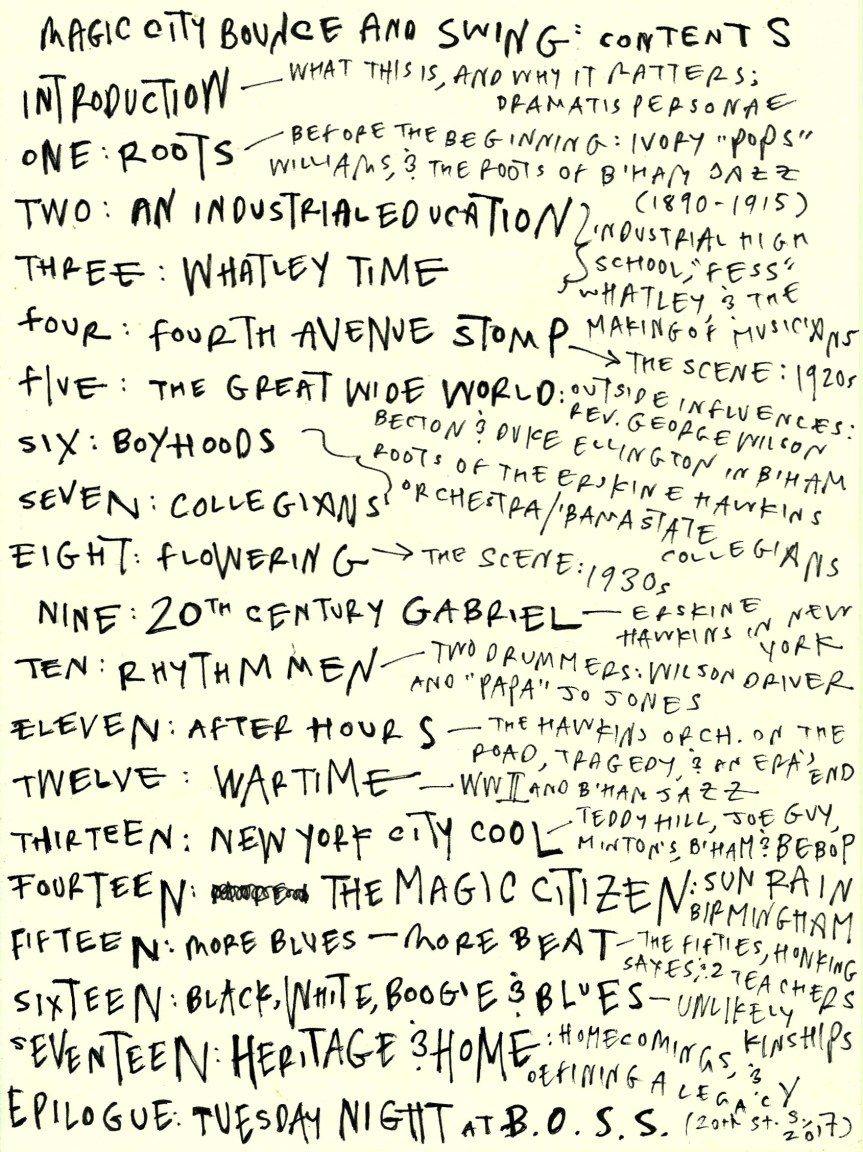 MAGIC CITY BOUNCE AND SWING: CONTENTS
INTRODUCTION — WHAT THIS IS, AND WHY IT MATTERS;
DRAMATIS PERSONAE
ONE: ROOTS — BEFORE THE BEGINNING: IVORY "POPS"
WILLIAMS, & THE ROOTS OF B'HAM JAZZ
(1890-1915)
TWO: AN INDUSTRIAL EDUCATION
THREE: WHATLEY TIME
INDUSTRIAL HIGH
SCHOOL, "FESS"
WHATLEY, & THE
MAKING OF MUSICIANS
FOUR: FOURTH AVENUE STOMP → THE SCENE: 1920s
FIVE: THE GREAT WIDE WORLD: OUTSIDE INFLUENCES:
REV. GEORGE WILSON
BECTON & DUKE ELLINGTON IN B'HAM
SIX: BOYHOODS
SEVEN: COLLEGIANS
ROOTS OF THE ERSKINE HAWKINS
ORCHESTRA/'BAMA STATE
COLLEGIANS
EIGHT: FLOWERING → THE SCENE: 1930s
NINE: 20TH CENTURY GABRIEL — ERSKINE
HAWKINS IN NEW
YORK
TEN: RHYTHM MEN — TWO DRUMMERS: WILSON DRIVER
AND "PAPA" JO JONES
ELEVEN: AFTER HOURS — THE HAWKINS ORCH. ON THE
ROAD, TRAGEDY, & AN ERA'S END
TWELVE: WARTIME — WWII AND B'HAM JAZZ
THIRTEEN: NEW YORK CITY COOL — TEDDY HILL, JOE GUY,
MINTON'S, B'HAM & BEBOP
FOURTEEN: THE MAGIC CITIZEN: SUN RA IN
BIRMINGHAM
FIFTEEN: MORE BLUES — MORE BEAT — THE FIFTIES, HONKING
SAXES, & 2 TEACHERS
SIXTEEN: BLACK, WHITE, BOOGIE & BLUES — UNLIKELY
KINSHIPS
SEVENTEEN: HERITAGE & HOME: HOMECOMINGS, &
DEFINING A LEGACY
EPILOGUE: TUESDAY NIGHT AT B.O.S.S. (20th St. S., 2017)